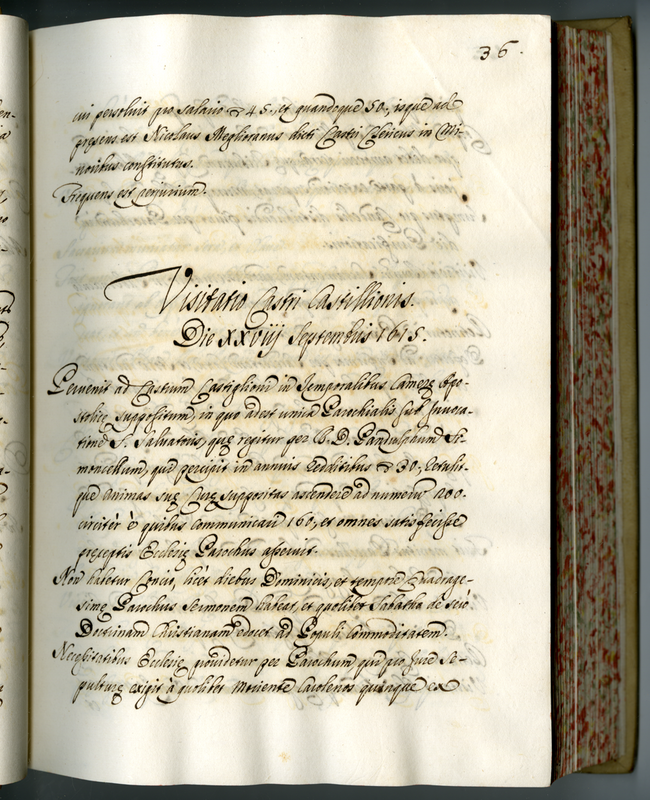 36.
cui persolvit pro salario ∇ 45., et quandoque 50., isque ad
presens est Nicolaus Meglioranus dicti Castri Clericus in Mi-
noribus constitutus.
Frequens est periurium.
Visitatio Castri Castillionis.
Die XXViij Septembris 1615.
Pervenit ad Castrum Castiglioni in Temporalibus Camerę Apo-
stolicę suppositum, in quo adest unica Parochialis sub Invoca-
tione S. Salvatoris, quę regitur per R. D. Pandulphum Si-
moncellum, qui percipit in annuis redditibus ∇ 30., retulit-
que animas suę Curę suppositas ascendere ad numerum 200.
circitèr è quibus communicant 160., et omnes satisfecisse
pręceptis Ecclesię Parochus asseruit.
Non habetur Concio, licèt diebus Dominicis, et tempore Quadrage-
simę Parochus sermonem habeat, et quolibet Sabatho de sero
Doctrinam Christianam edocet ad Populi commoditatem.
Necessitatibus Ecclesię providetur per Parochum qui pro Jure Se-
pulturę exigit à quolibet moriente Carolenos quinque ex